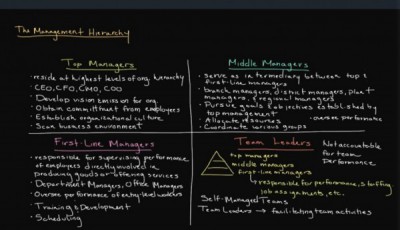 The Management Hierarchy
Top Managers
• reside at highest levels of org. hierarchy
• CEO, CFO, CMO, COO
• Develop vision & mission for org.
• Obtain committment from employees
• Establish organizational culture
• Scan business environment
Middle Managers
• serve as intermediary between top &
first-line managers
• branch managers, district managers, plant
managers, & regional managers
• Pursue goals & objectives established by
top management
• oversee performance
• Allocate resources
• Coordinate various groups
First-Line Managers
• responsible for supervising performance
of employees directly involved in
producing goods or offering services
• Department Managers, Office Managers
• Oversee performance of entry-level workers
• Training & Development
• Scheduling
Team Leaders
Not accountable
for team
performance
top managers
middle managers
first-line managers
→ responsible for performance, staffing,
job assignments, etc.
Self-Managed Teams
Team Leaders → facilitating team activities